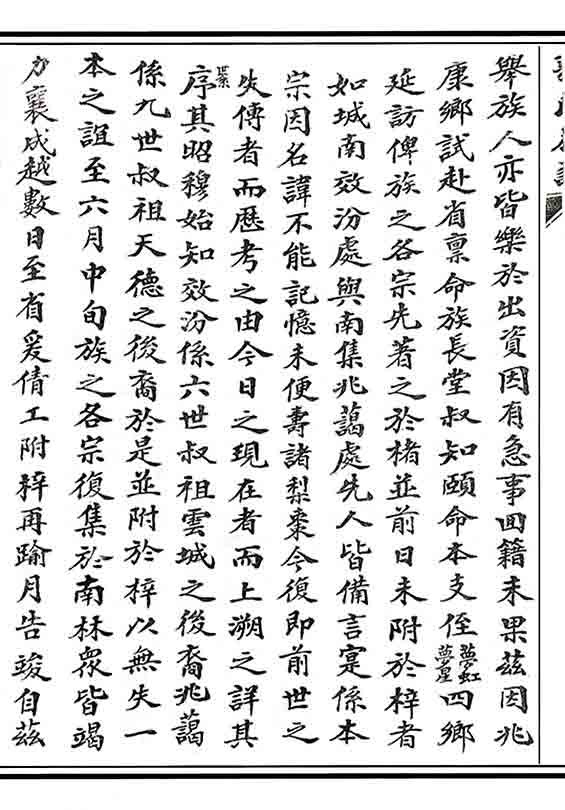 舉族人亦皆樂於出資因有急事回籍未果茲因兆
康鄉試赴省稟命族長堂叔知頤命本支侄夢虹夢星四鄉
延訪俾族之各宗先著之於楮並前日未附於梓者
如城南效汾處與南集兆藹處先人皆備言寔係本
宗因名諱不能記憶未便壽諸梨棗今復即前世之
失傳者而歷考之由今日之現在者而上溯之詳其世系
序其昭穆始知效汾係六世叔祖雲城之後裔兆藹
係九世叔祖天德之後裔於是並附於梓以無失一
本之誼至六月中旬族之各宗復集於南林眾皆竭
力襄成越數日至省爰倩工附梓再踰月告竣自茲